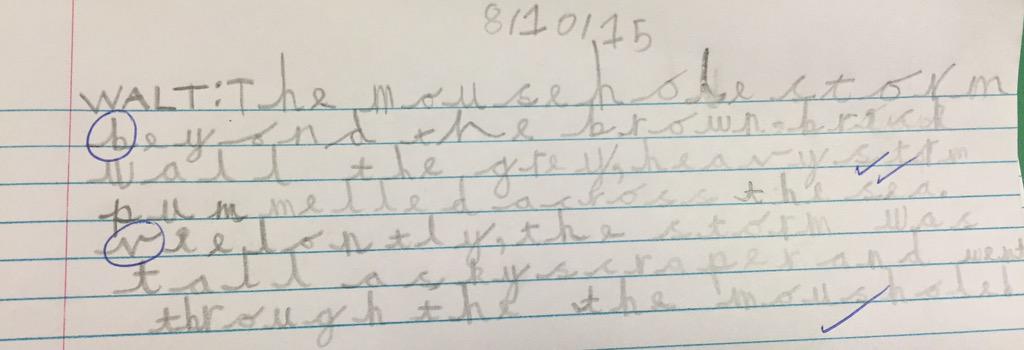 8/10/15
WALT: The mousehole storm
beyond the brown-brick
wall the grey, heavy strm
pummelled across the sea.
vielontly, the storm was
tall a skyscraper and went
through the the moushole!